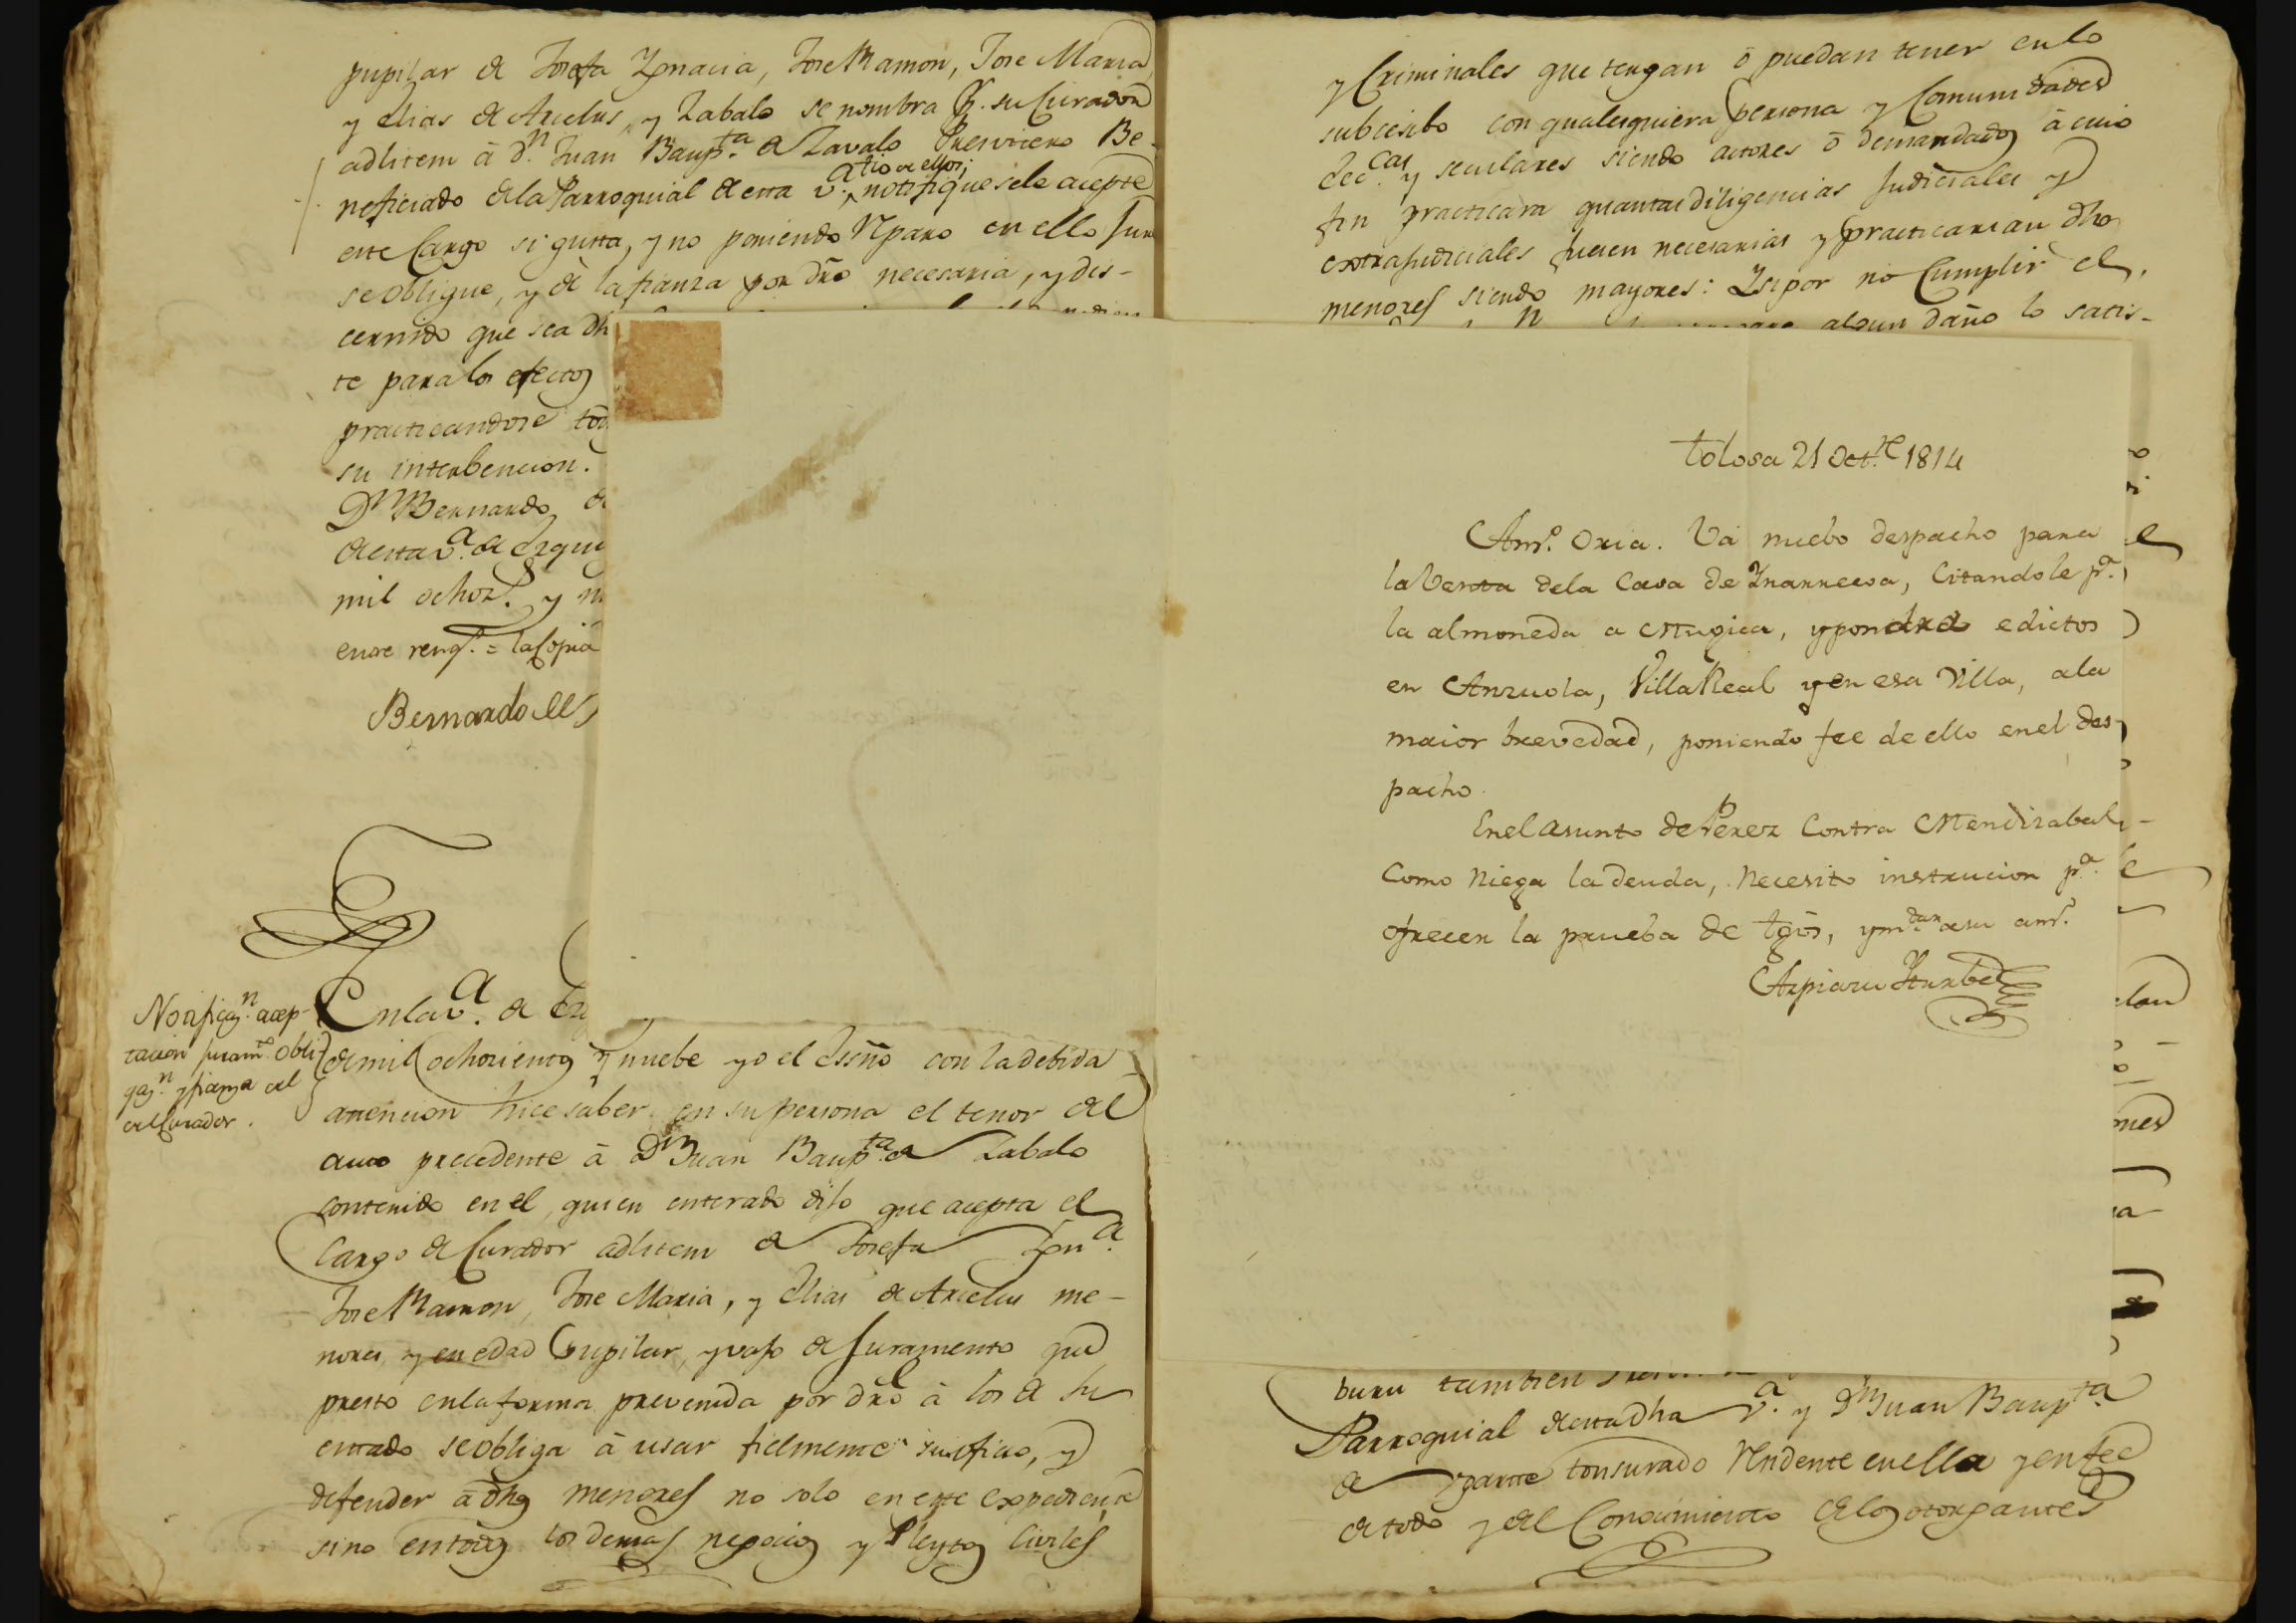 pupilar de Josefa Ygnacia, Jose Ramon, Jose Maria
y Elias de Arcelus, y Zabalo se nombra p.r su Curador
adlitem á d.n Juan Baup.ta de Zavalo Presvitero Be-
tio de ellos;
neficiado de la Parroquial de esta v.a, notifiquesele acepte
este Cargo si gusta, y no poniendo reparo en ello Jure
se obligue, y dé la fianza por dro necesaria, y dis-
cernido que sea dh
te para los efectos
practicandose tod
su interbencion.
Dn Bernardo de
de esta v.a de
mil ochoz.s y n
entre reng.s = la Copia
Bernardo
Notificaz.n acep-
tacion juram.to obli
gaz.n y fianza del
del Curador.
En la v.a de
de mil ochozientos y nuebe yo el Essño con la debida
atencion hice saber en su persona el tenor del
auto precedente á Dn Juan Baup.ta de Zabalo
contenido en el, quien enterado dijo que acepta el
Cargo de Curador adlitem de Josefa Ygn.a
Jose Ramon, Jose Maria, y Elias de Arcelus me-
nores, y en edad Pupilar, y vajo de Juramento que
presto en la forma prevenida por dro á los de su
estado se obliga á usar fielmente su oficio, y
defender á dhos menores no solo en este expediente
sino en todos los demas negocios y Pleytos Civiles
y Criminales que tengan ó puedan tener en lo
subcesibo con qualesquiera personas y Comunidades
Ecc.cas y seculares siendo actores ó demandados á cuio
fin practicará quantas diligencias Judiciales y
extrajudiciales fueren necesarias y practicarian dhos
menores siendo mayores: Y si por no Cumplir el
algun daño lo satis-
Tolosa 21 Oct.re 1814
Am.o Oria. Vá nuebo despacho para
la Venta de la Casa de Ynarreeva, Citandole p.a
la almoneda a Mugica, y pondrá edictos
en Anzuola, Villa Real y en esa Villa, a la
maior brevedad, poniendo fee de ello en el des-
pacho.
En el asunto de Perez Contra Mendizabal,
Como Niega la deuda, Necesito instrucion p.a
ofrecer la prueba de tgõs, y m.dar a su am.o
Arpiazu Yturbe
buru tambien
Parroquial de esta dha v.a y Dn Juan Baup.ta
de Ygarte tonsurado residente en ella y en fee
de todo y del Conocimiento de los otorgantes